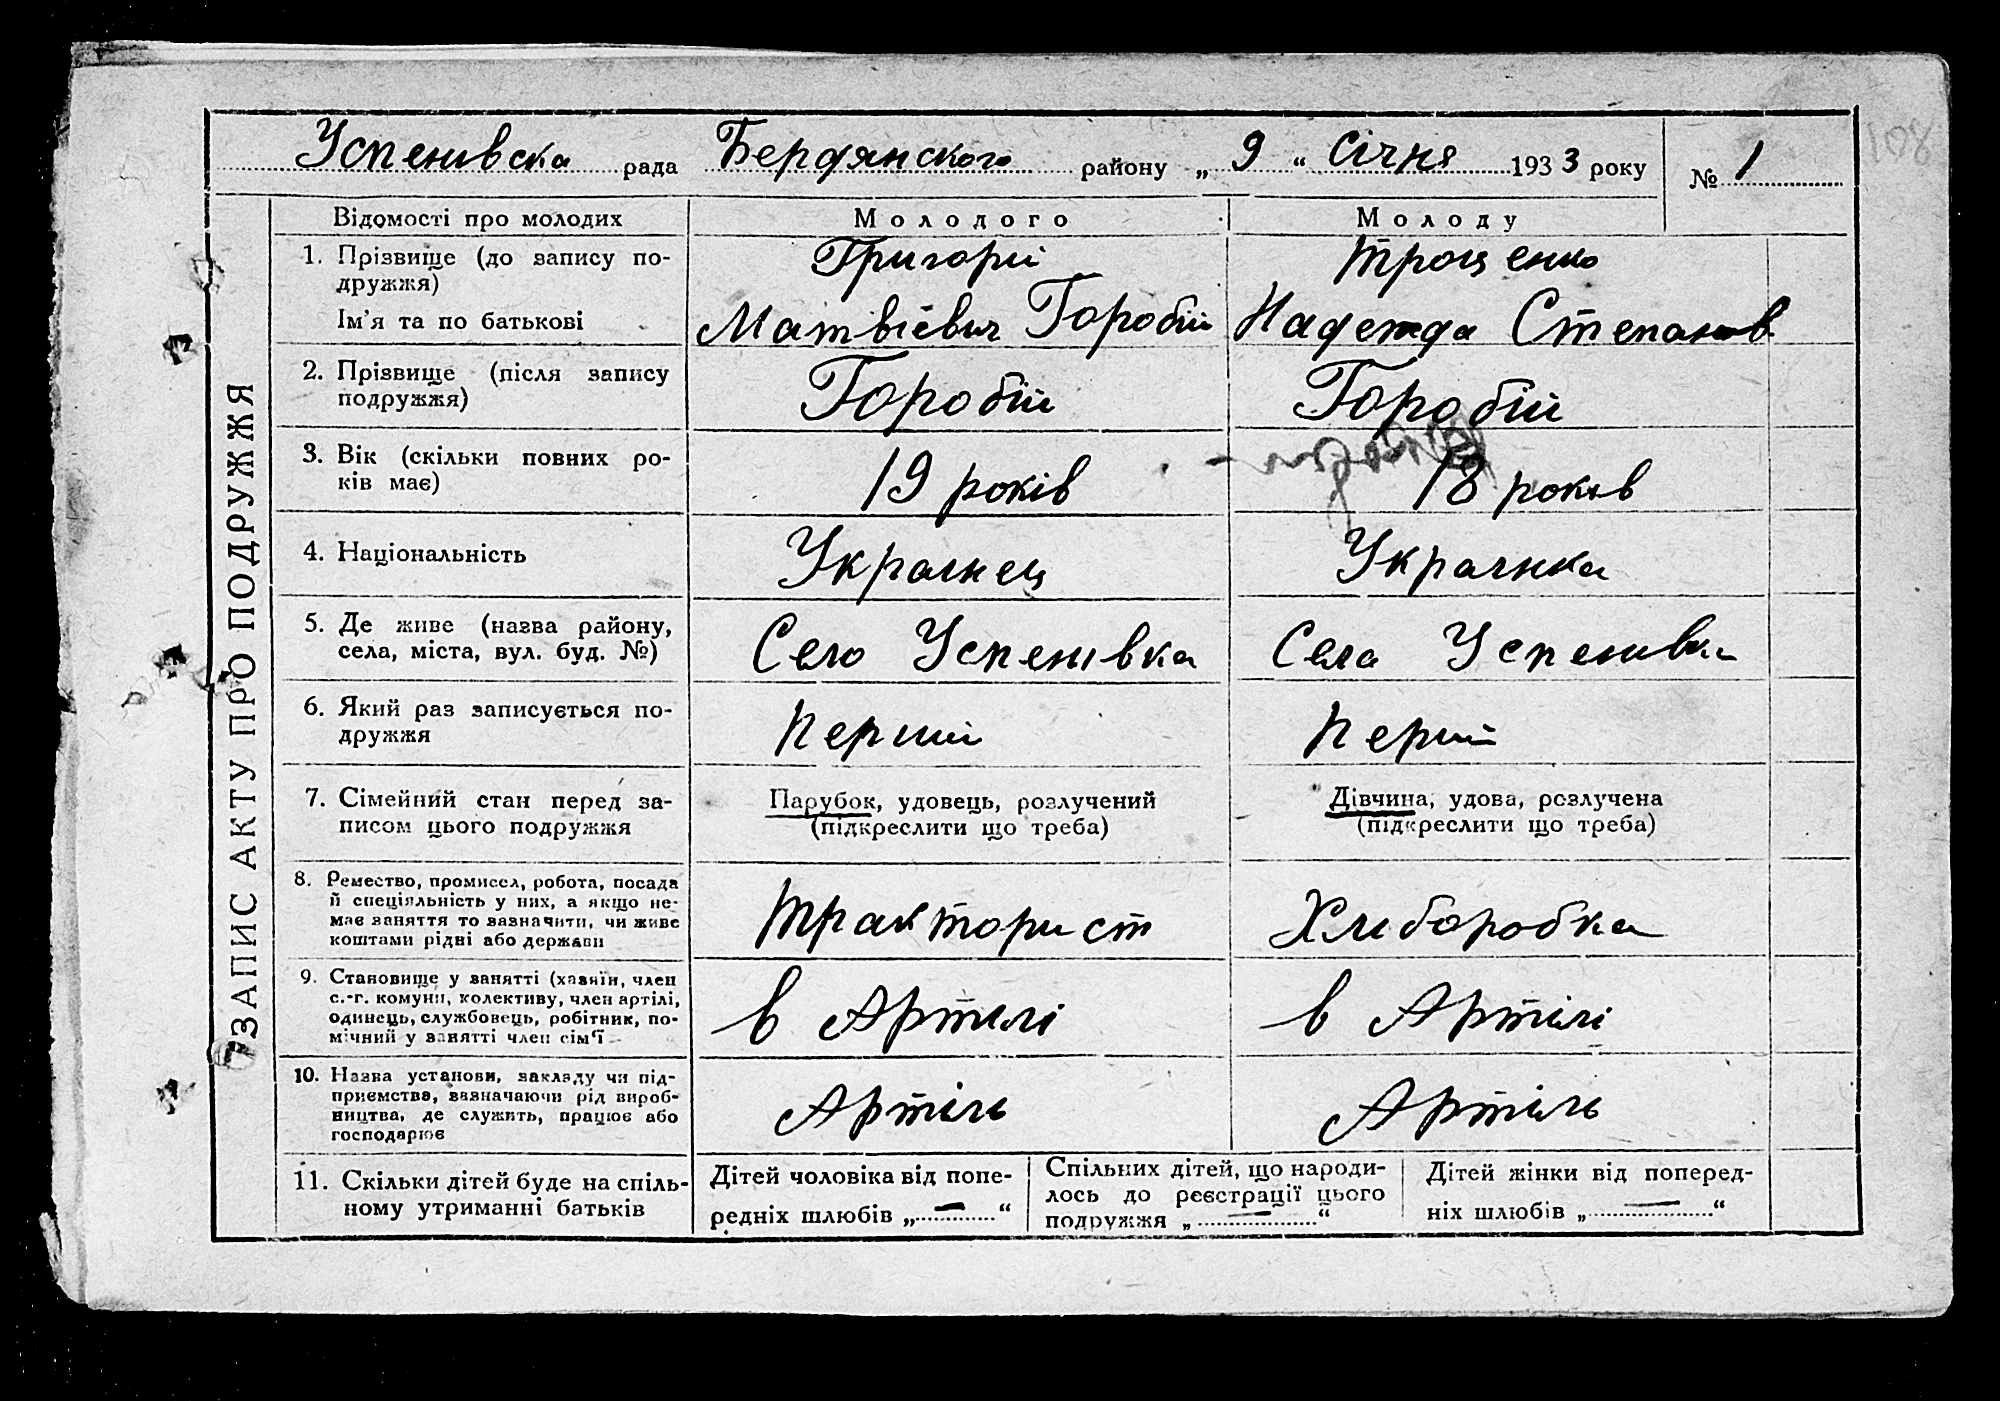 Успенивска рада Бердянского району „ 9 “ Січня 1933 року № 1
108
ЗАПИС АКТУ ПРО ПОДРУЖЖЯ
Відомості про молодих Молодого Молоду
1. Прізвище (до запису по-
дружжя)
Ім'я та по батькові
Григорій
Матвієвич Горобій
Троценко
Надежда Степанов.
2. Прізвище (після запису
подружжя)
Горобій
Горобій
3. Вік (скільки повних ро-
ків має)
19 років
18 років
4. Національність
Украінец
Украінка
5. Де живе (назва району,
села, міста, вул. буд. №)
Село Успенівка
Села Успенивки
6. Який раз записується по-
дружжя
Перший
Перший
7. Сімейний стан перед за-
писом цього подружжя
Парубок, удовець, розлучений
(підкреслити що треба)
Дівчина, удова, розлучена
(підкреслити що треба)
8. Ремество, промисел, робота, посада
й спеціяльність у них, а якщо не-
має заняття то зазначити, чи живе
коштами рідні або держави
Тракторист
Хлиборобка
9. Становище у занятті (хазяїн, член
с.-г. комуни, колективу, член артілі,
одинець, службовець, робітник, по-
мічний у занятті член сім'ї
в Артилі
в Артілі
10. Назва установи, закладу чи під-
приємства, зазначаючи рід вироб-
ництва, де служить, працює або
господарює
Артіль
Артіль
11. Скільки дітей буде на спіль-
ному утриманні батьків
Дітей чоловіка від попе-
редніх шлюбів „ — “
Спільних дітей, що народи-
лось до реєстрації цього
подружжя „ — “
Дітей жінки від поперед-
ніх шлюбів „ — “